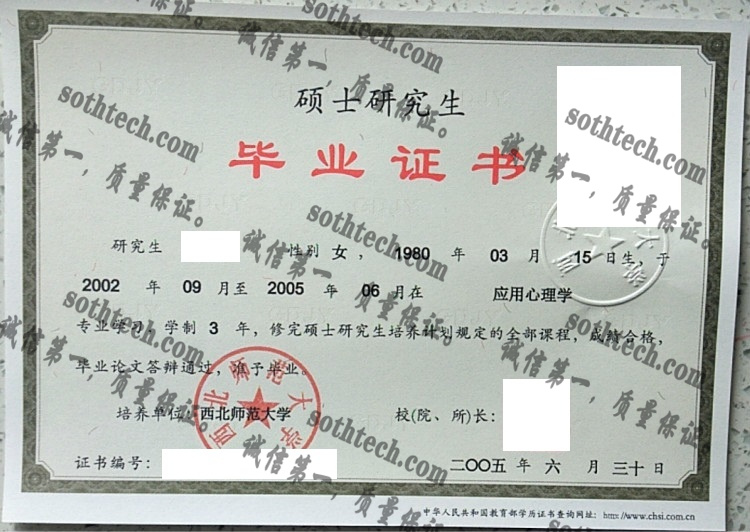 硕士研究生
毕业证书
研究生 性别 女，1980 年 03 月 15 日生，于
2002 年 09 月至 2005 年 06 月在 应用心理学
专业学习，学制 3 年，修完硕士研究生培养计划规定的全部课程，成绩合格，
毕业论文答辩通过，准予毕业。
培养单位：西北师范大学 校(院、所)长：
西北师范大学
证书编号： 二〇〇五 年 六 月 三十 日
中华人民共和国教育部学历证书查询网址：http://www.chsi.com.cn
sothtech.com
诚信第一，质量保证。
sothtech.com
诚信第一，质量保证。
sothtech.com
诚信第一，质量保证。
sothtech.com
诚信第一，质量保证。
sothtech.com
诚信第一，质量保证。
sothtech.com
诚信第一，质量保证。
sothtech.com
诚信第一，质量保证。